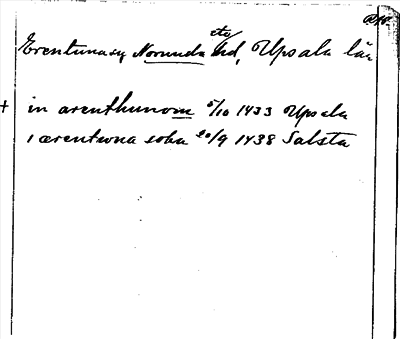 Erentuna sn, Norunda hd, Upsala län
in arenthunom 5/10 1433 Upsala
i ærentwna sokn 20/9 1438 Salsta